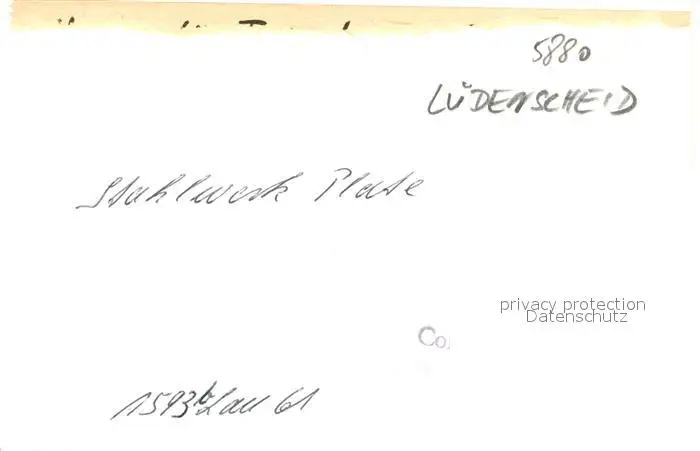 5880
LÜDENSCHEID
Stahlwerk Plate
privacy protection
Datenschutz
Co
1593
61